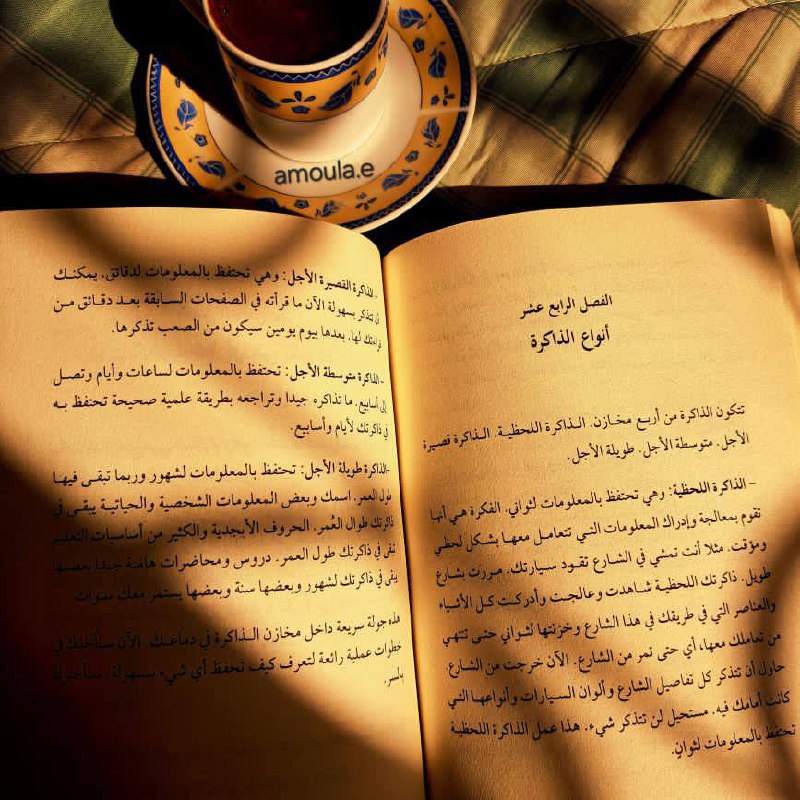 amoula.e
الفصل الرابع عشر
أنواع الذاكرة
تتكون الذاكرة من أربع مخازن. الذاكرة اللحظية. الذاكرة قصيرة
الأجل. متوسطة الأجل. طويلة الأجل.
– الذاكرة اللحظية: وهي تحتفظ بالمعلومات لثواني. الفكرة هي أنها
تقوم بمعالجة وإدراك المعلومات التي تتعامل معها بشكل لحظي
ومؤقت. مثلا أنت تمشي في الشارع تقود سيارتك. مررت بشارع
طويل. ذاكرتك اللحظية شاهدت وعالجت وأدركت كل الأشياء
والعناصر التي في طريقك في هذا الشارع وخزنتها لثواني حتى تنتهي
من تعاملك معها، أي حتى نمر من الشارع. الآن خرجت من الشارع
حاول أن تتذكر كل تفاصيل الشارع وألوان السيارات وأنواعها التي
كانت أمامك فيه. مستحيل لن تتذكر شيء. هذا عمل الذاكرة اللحظية
تحتفظ بالمعلومات لثوانٍ.
- الذاكرة القصيرة الأجل: وهي تحتفظ بالمعلومات لدقائق. يمكنك
أن تتذكر بسهولة الآن ما قرأته في الصفحات السابقة بعد دقائق من
قراءتك لها. بعدها بيوم يومين سيكون من الصعب تذكرها.
-الذاكرة متوسطة الأجل: تحتفظ بالمعلومات لساعات وأيام وتصل
إلى أسابيع. ما تذاكره جيدا وتراجعه بطريقة علمية صحيحة تحتفظ به
في ذاكرتك لأيام وأسابيع.
-الذاكرة طويلة الأجل: تحتفظ بالمعلومات لشهور وربما تبقى فيها
طول العمر. اسمك وبعض المعلومات الشخصية والحياتية يبقى في
ذاكرتك طوال العُمر. الحروف الأبجدية والكثير من أساسيات التعليم
تبقى في ذاكرتك طول العمر. دروس ومحاضرات هامة جدا بعضها
يبقى في ذاكرتك لشهور وبعضها سنة وبعضها يستمر معك سنوات
هذه جولة سريعة داخل مخازن الذاكرة في دماغك. الآن سآخذك في
خطوات عملية رائعة لتعرف كيف تحفظ أي شيء بسهولة.